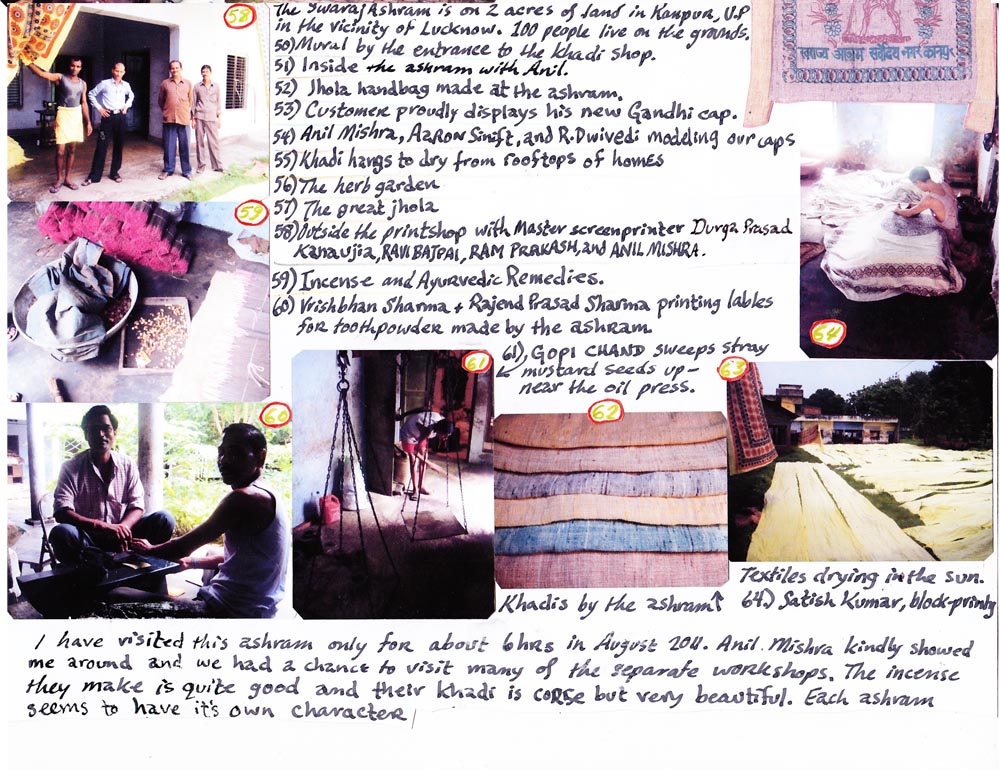 The Swaraj Ashram is on 2 acres of land in Kanpur, U.P
in the vicinity of Lucknow. 100 people live on the grounds.
50) Mural by the entrance to the khadi shop.
51) Inside the ashram with Anil.
52) Jhola handbag made at the ashram.
53) Customer proudly displays his new Gandhi cap.
54) Anil Mishra, Aaron Sinift, and R. Dwivedi modeling our caps
55) Khadi hangs to dry from rooftops of homes
56) The herb garden
57) The great jhola
58) Outside the printshop with Master screenprinter Durga Prasad
Kanaujia, RAVI BAJPAI, RAM PRAKASH, and ANIL MISHRA.
59) Incense and Ayurvedic Remedies.
60) Vrishbhan Sharma + Rajend Prasad Sharma printing lables
for toothpowder made by the ashram
61), GOPI CHAND sweeps stray
mustard seeds up–
near the oil press.
स्वराज्य आश्रम सर्वोदय नगर कानपुर
58
59
60
61
62
63
64
Khadis by the ashram↑
Textiles drying in the sun.
64.) Satish Kumar, block-printing
I have visited this ashram only for about 6hrs in August 2011. Anil Mishra kindly showed
me around and we had a chance to visit many of the separate workshops. The incense
they make is quite good and their khadi is corse but very beautiful. Each ashram
seems to have it's own character